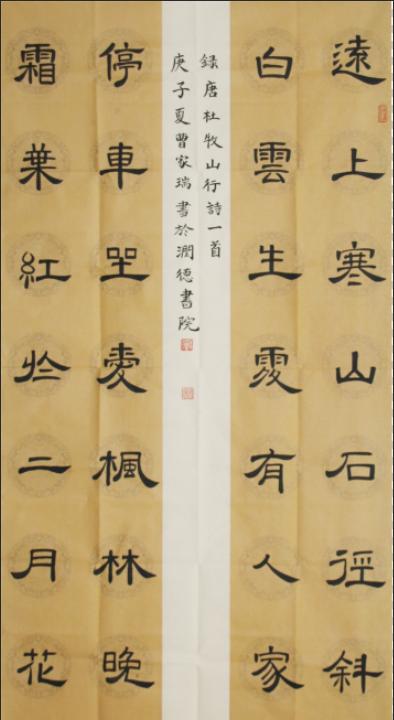 遠上寒山石徑斜
白雲生處有人家
停車坐愛楓林晚
霜葉紅於二月花
錄唐杜牧山行詩一首
庚子夏曹家瑞書於潤德書院